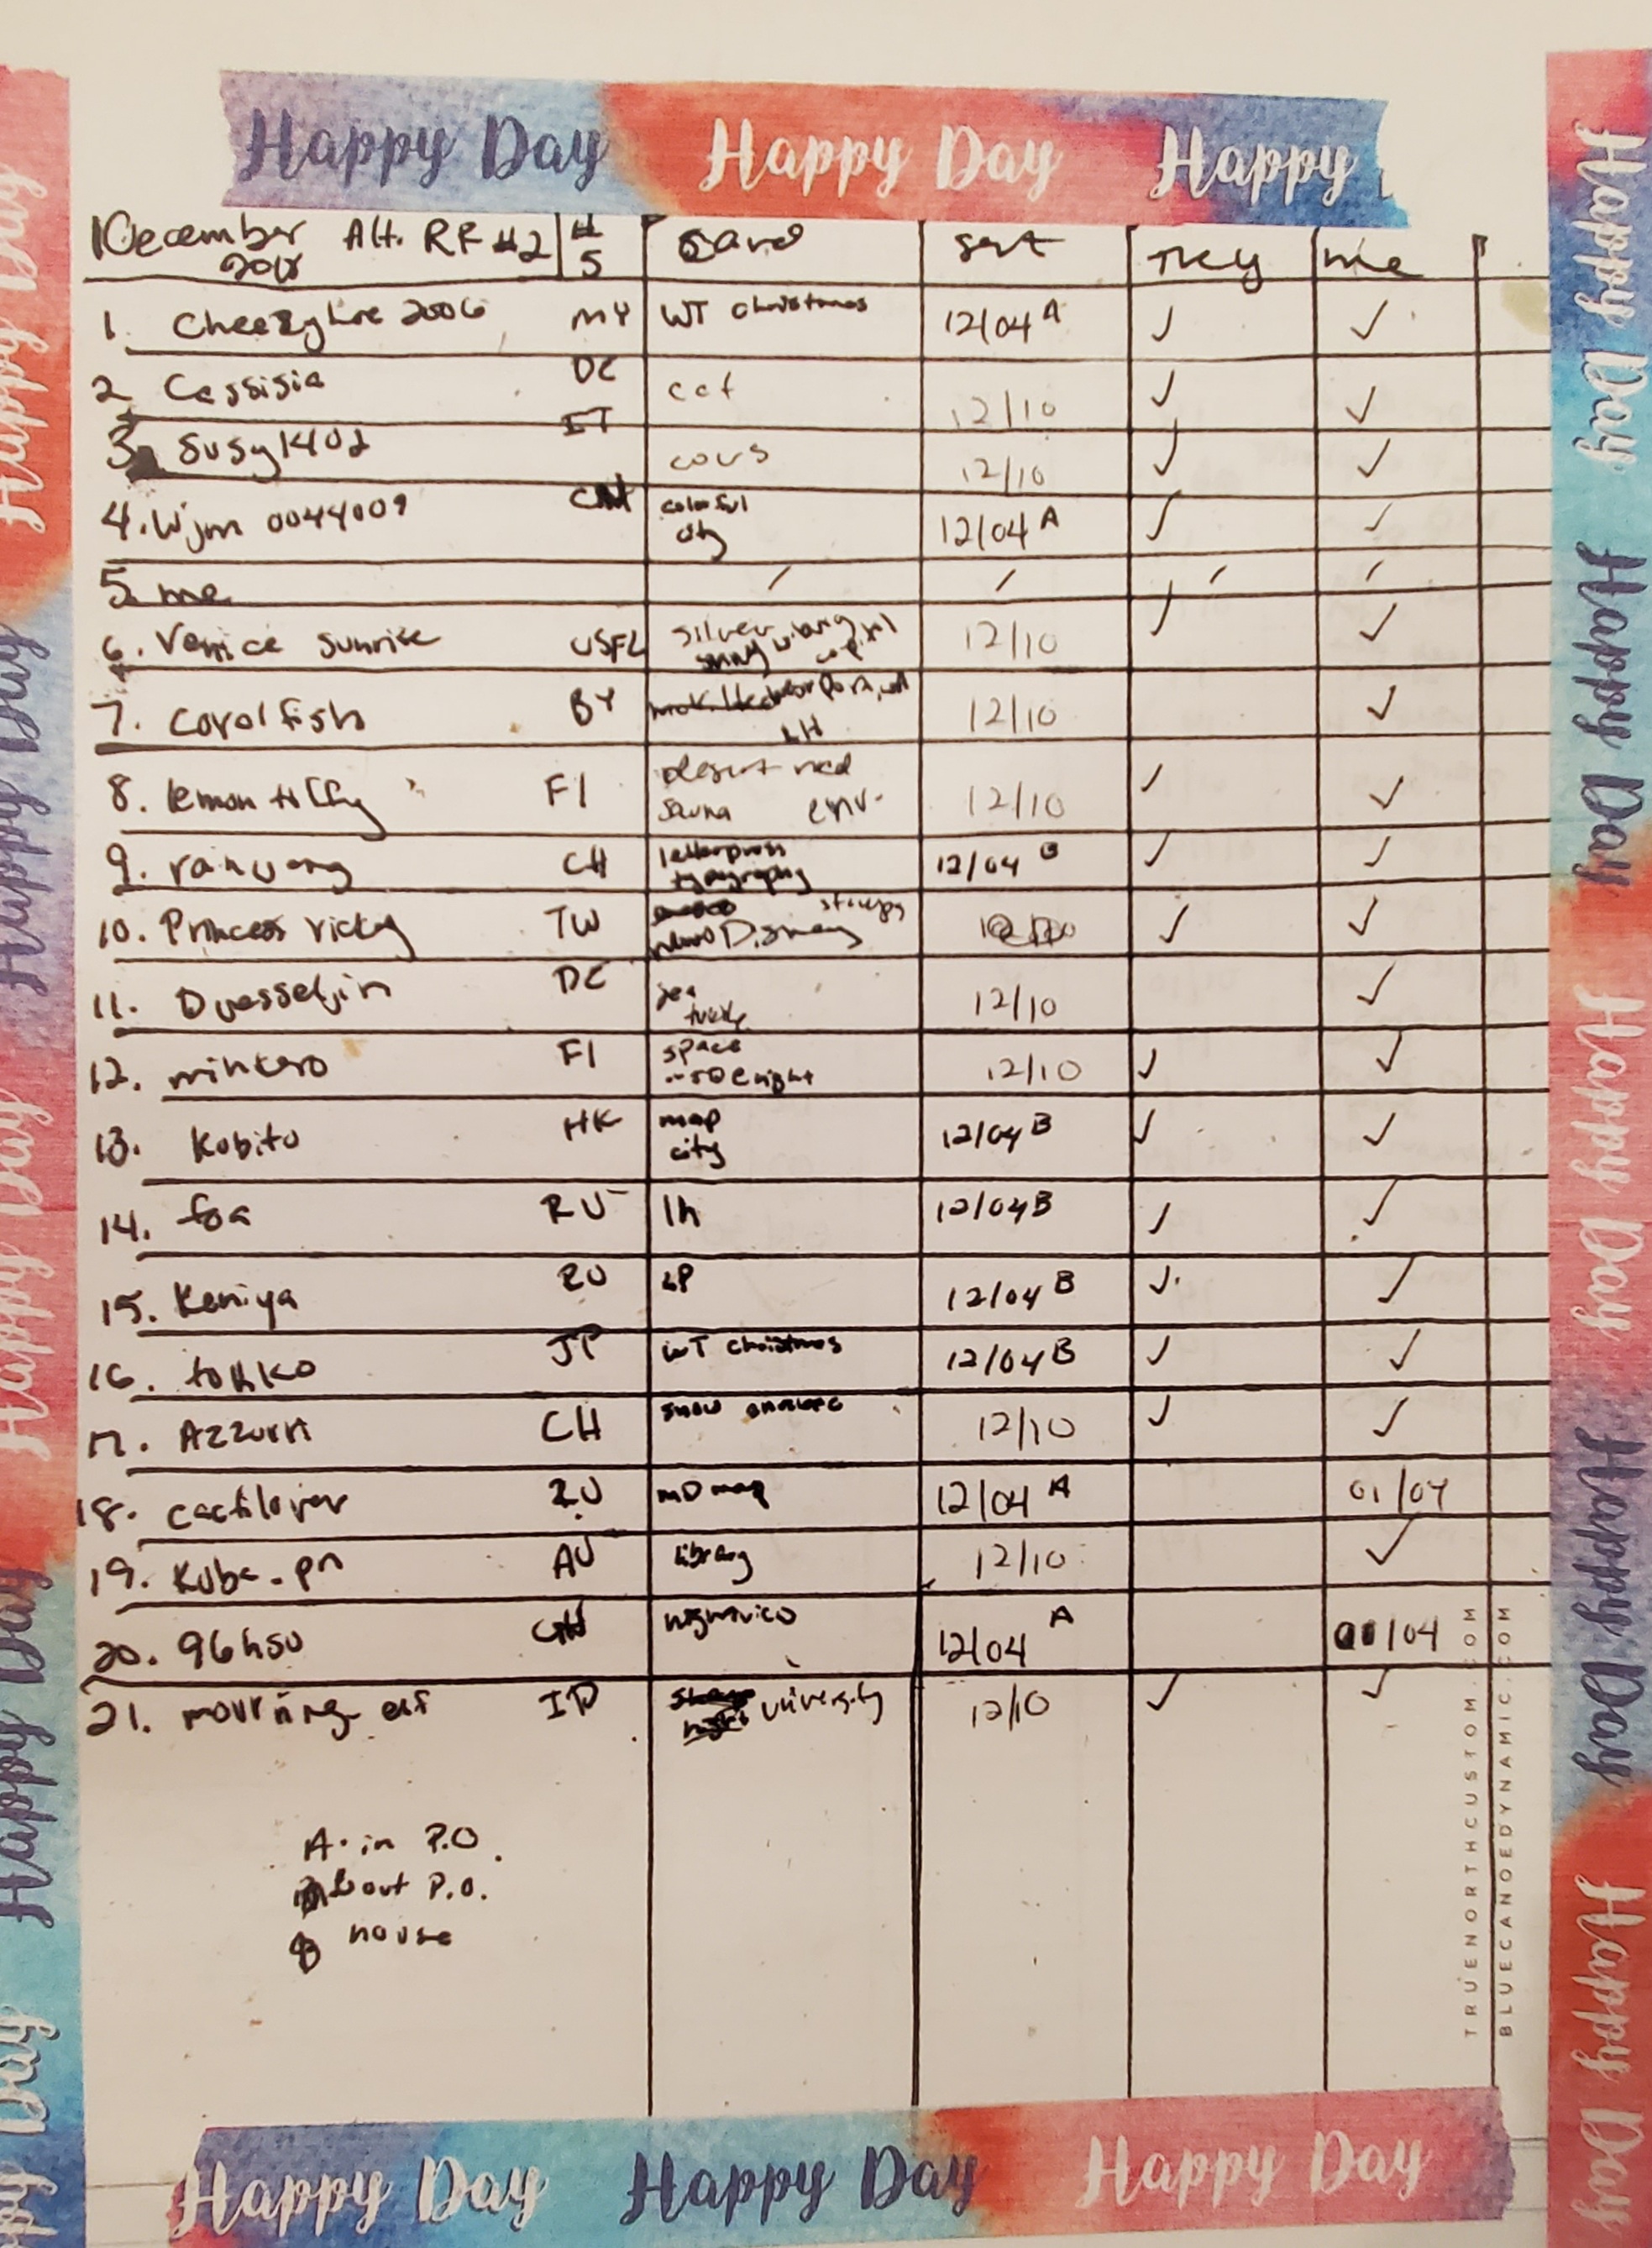 Happy Day Happy Day Happy
December Alt. RR #2 # Card sent They me
2018 5
1. Cheezylove2006 MY WT christmas 12/04 A ✓ ✓
2 Cassisia DE cat 12/10 ✓ ✓
3. Susy1402 IT cows 12/10 ✓ ✓
4. Wjm 0044009 CN colorful 12/04 A ✓ ✓
city
5. me / / / /
6. Venice sunrise USFL silver 12/10 ✓ ✓
7. Coralfish BY 12/10 ✓
LH
8. lemon tiffy FI 12/10 ✓ ✓
sauna env.
9. CH letterpress 12/04 B ✓ ✓
typography
10. Princess ricky TW Disney ✓ ✓
11. Duesseljin DE sea 12/10 ✓
turtle
12. FI space 12/10 ✓ ✓
night
13. Kobito HK map 12/04 B ✓ ✓
city
14. foa RU lh 12/04 B ✓ ✓
15. Keniya RU 12/04 B ✓ ✓
16. JP WT christmas 12/04 B ✓ ✓
17. Azzurri CH snow 12/10 ✓ ✓
18. cactilover RU MD map 12/04 A 01/04
19. Kuba-pn AU library 12/10 ✓
20. 96hsu 12/04 A /04
21. mourning elf ID university 12/10 ✓ ✓
A. in P.O.
out P.O.
house
TRUENORTHCUSTOM.COM
BLUECANOEDYNAMIC.COM
Happy Day Happy Day Happy Day
Happy Day Happy Day Happy Day Happy Day